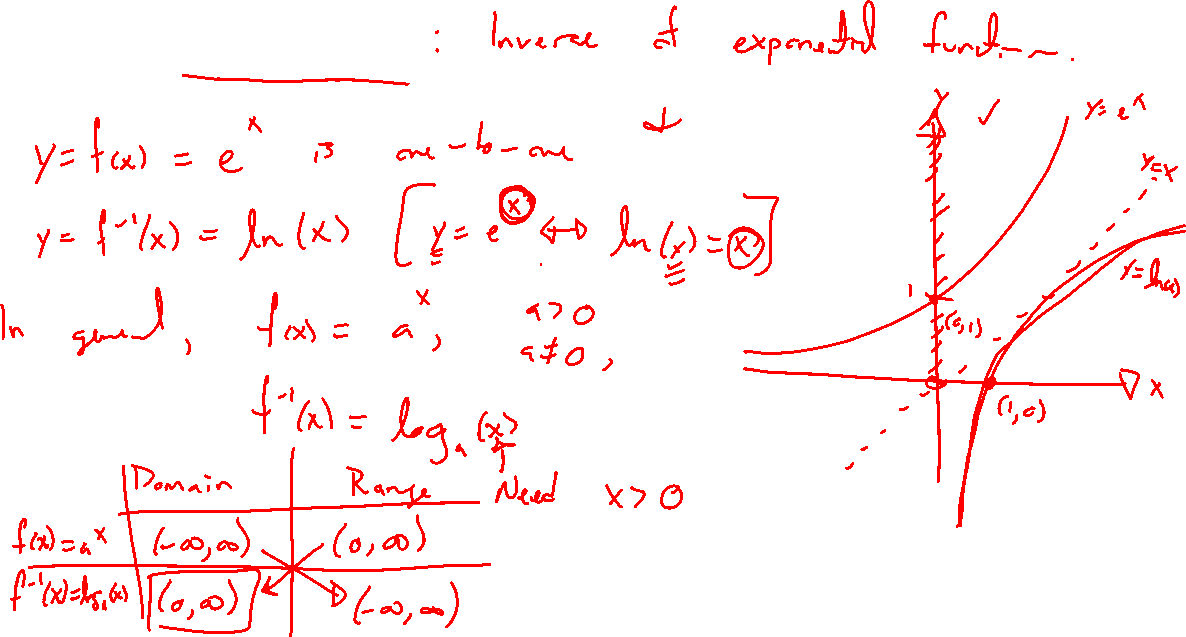 : Inverse of exponential function.
y = f(x) = e^x is one-to-one
y = f^-1(x) = ln(x) [y = e^x ↔ ln(x) = x]
In general, f(x) = a^x, a > 0
a ≠ 0,
f^-1(x) = log_a (x)
Need x > 0
Domain Range
f(x) = a^x (-∞, ∞) (0, ∞)
f^-1(x) = log_a(x) (0, ∞) (-∞, ∞)
y ✓
y = e^x
y = x
y = ln(x)
1
(0,1)
(1,0)
x